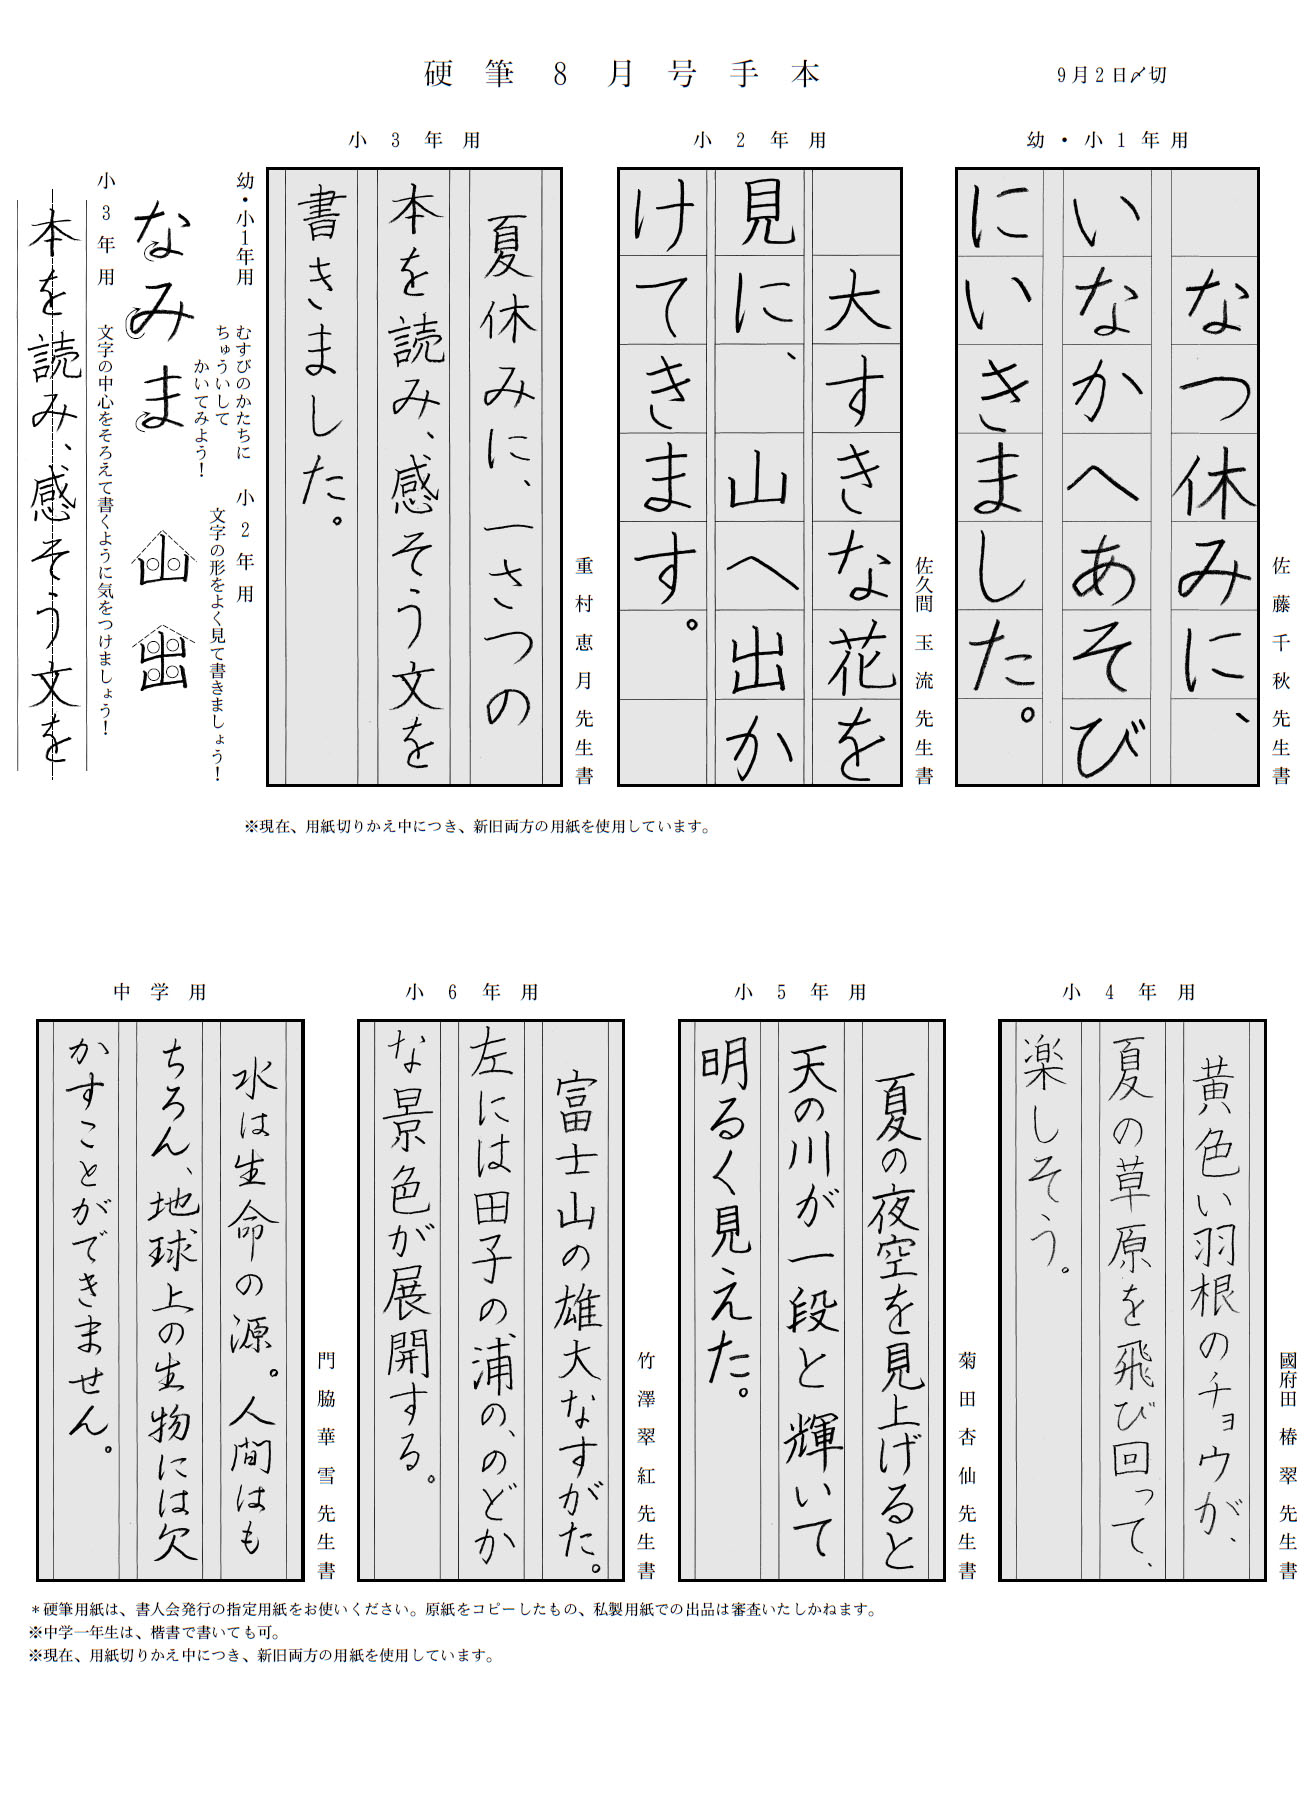 硬筆8月号手本
9月2日〆切
幼・小1年用
なつ休みに、
いなかへあそび
にいきました。
佐藤千秋先生書
小2年用
大すきな花を
見に、山へ出か
けてきます。
佐久間玉流先生書
小3年用
夏休みに、一さつの
本を読み、感そう文を
書きました。
重村恵月先生書
幼・小1年用
むすびのかたちに
ちゅういして
かいてみよう!
なみま
小2年用
文字の形をよく見て書きましょう!
山出
小3年用
文字の中心をそろえて書くように気をつけましょう!
本を読み、感そう文を
※現在、用紙切りかえ中につき、新旧両方の用紙を使用しています。
小4年用
黄色い羽根のチョウが、
夏の草原を飛び回って、
楽しそう。
國府田椿翠先生書
小5年用
夏の夜空を見上げると
天の川が一段と輝いて
明るく見えた。
菊田杏仙先生書
小6年用
富士山の雄大なすがた。
左には田子の浦の、のどか
な景色が展開する。
竹澤翠紅先生書
中学用
水は生命の源。人間はも
ちろん、地球上の生物には欠
かすことができません。
門脇華雪先生書
＊硬筆用紙は、書人会発行の指定用紙をお使いください。原紙をコピーしたもの、私製用紙での出品は審査いたしかねます。
※中学一年生は、楷書で書いても可。
※現在、用紙切りかえ中につき、新旧両方の用紙を使用しています。